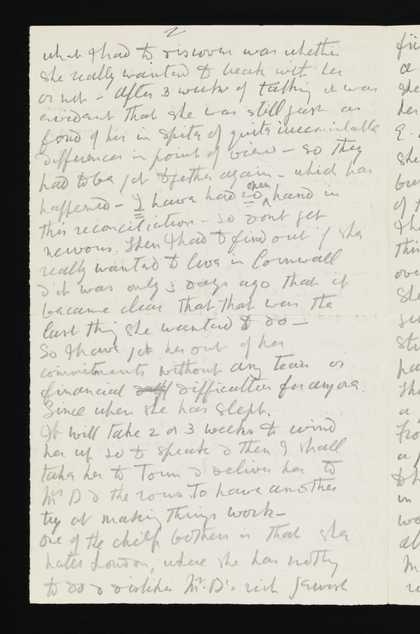 2
what I had to discover was whether
she really wanted to break with her
or not - After 3 weeks of talking it was
evident that she was still just as
fond of her in spite of quite irreconcilable
differences in point of view - So they
had to be got together again - which has
happened - I have had no open hand in
this reconciliation - so don't get
nervous. Then I had to find out if she
really wanted to live in Cornwall
& it was only 3 days ago that it
became clear that that was the
last thing she wanted to do -
So I have got her out of her
commitments without any tears or
financial difficulties for anyone.
Since when she has slept.
It will take 2 or 3 weeks to wind
her up so to speak & then I shall
take her to Town & deliver her to
Mrs D & the rows. To have another
try at making things work -
One of the chief bothers is that she
hates London, where she has nothing
to do & dislikes Mrs D's rich Jewish